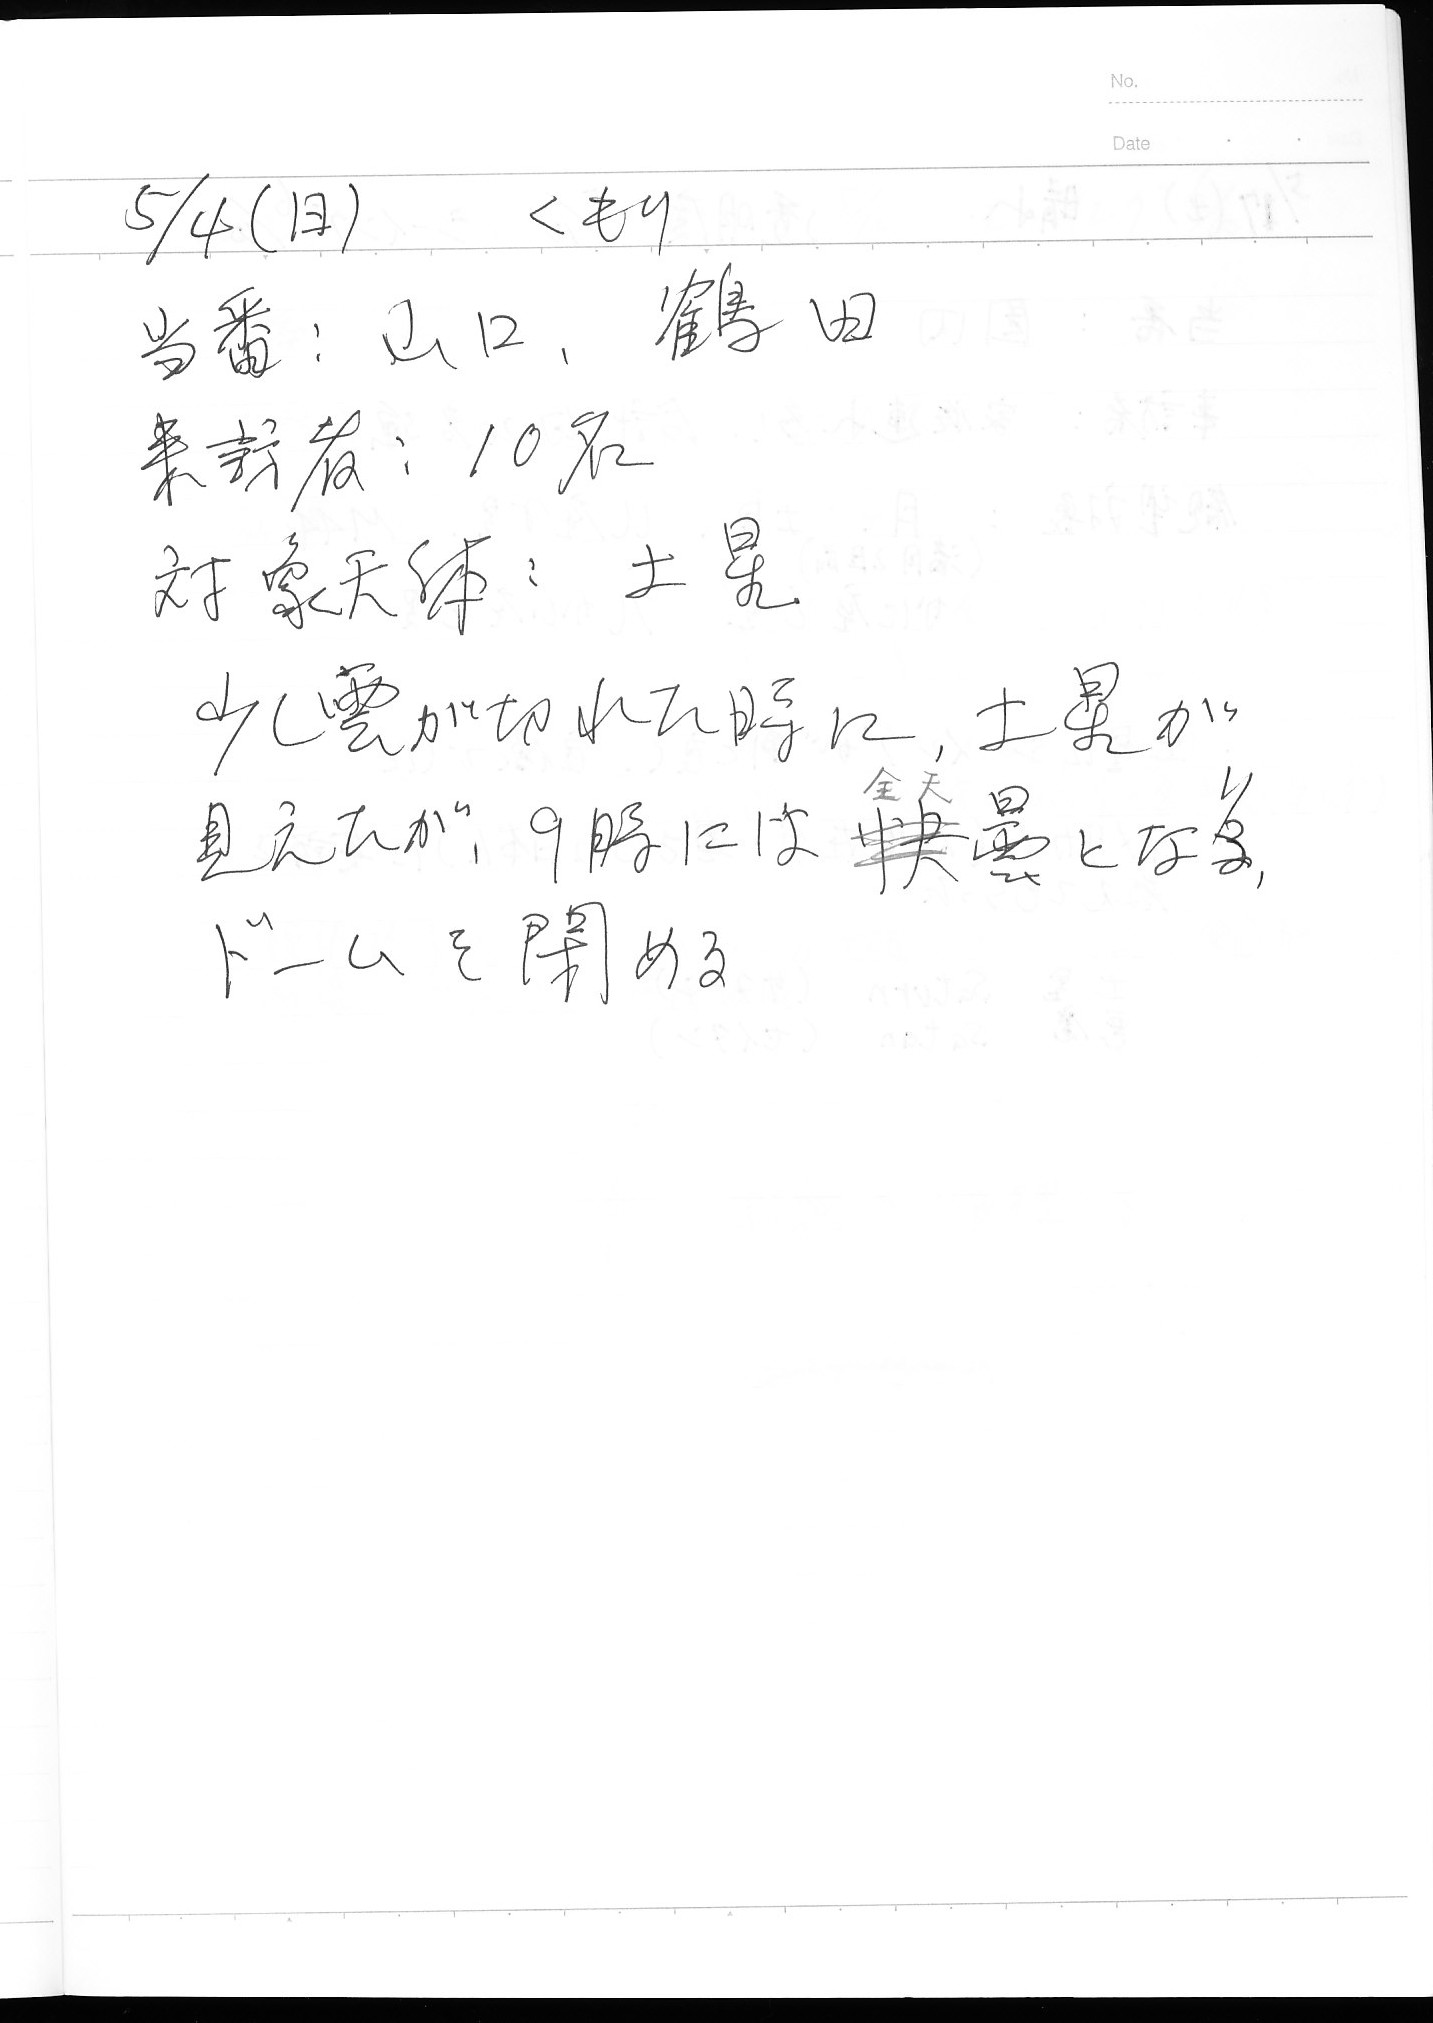 No.
Date
5/4(日) くもり
当番:山口、鶴田
来訪者:10名
対象天体:土星
少し雲が切れた時に,土星が
見えたが,9時には全天曇となり,
ドームを閉める